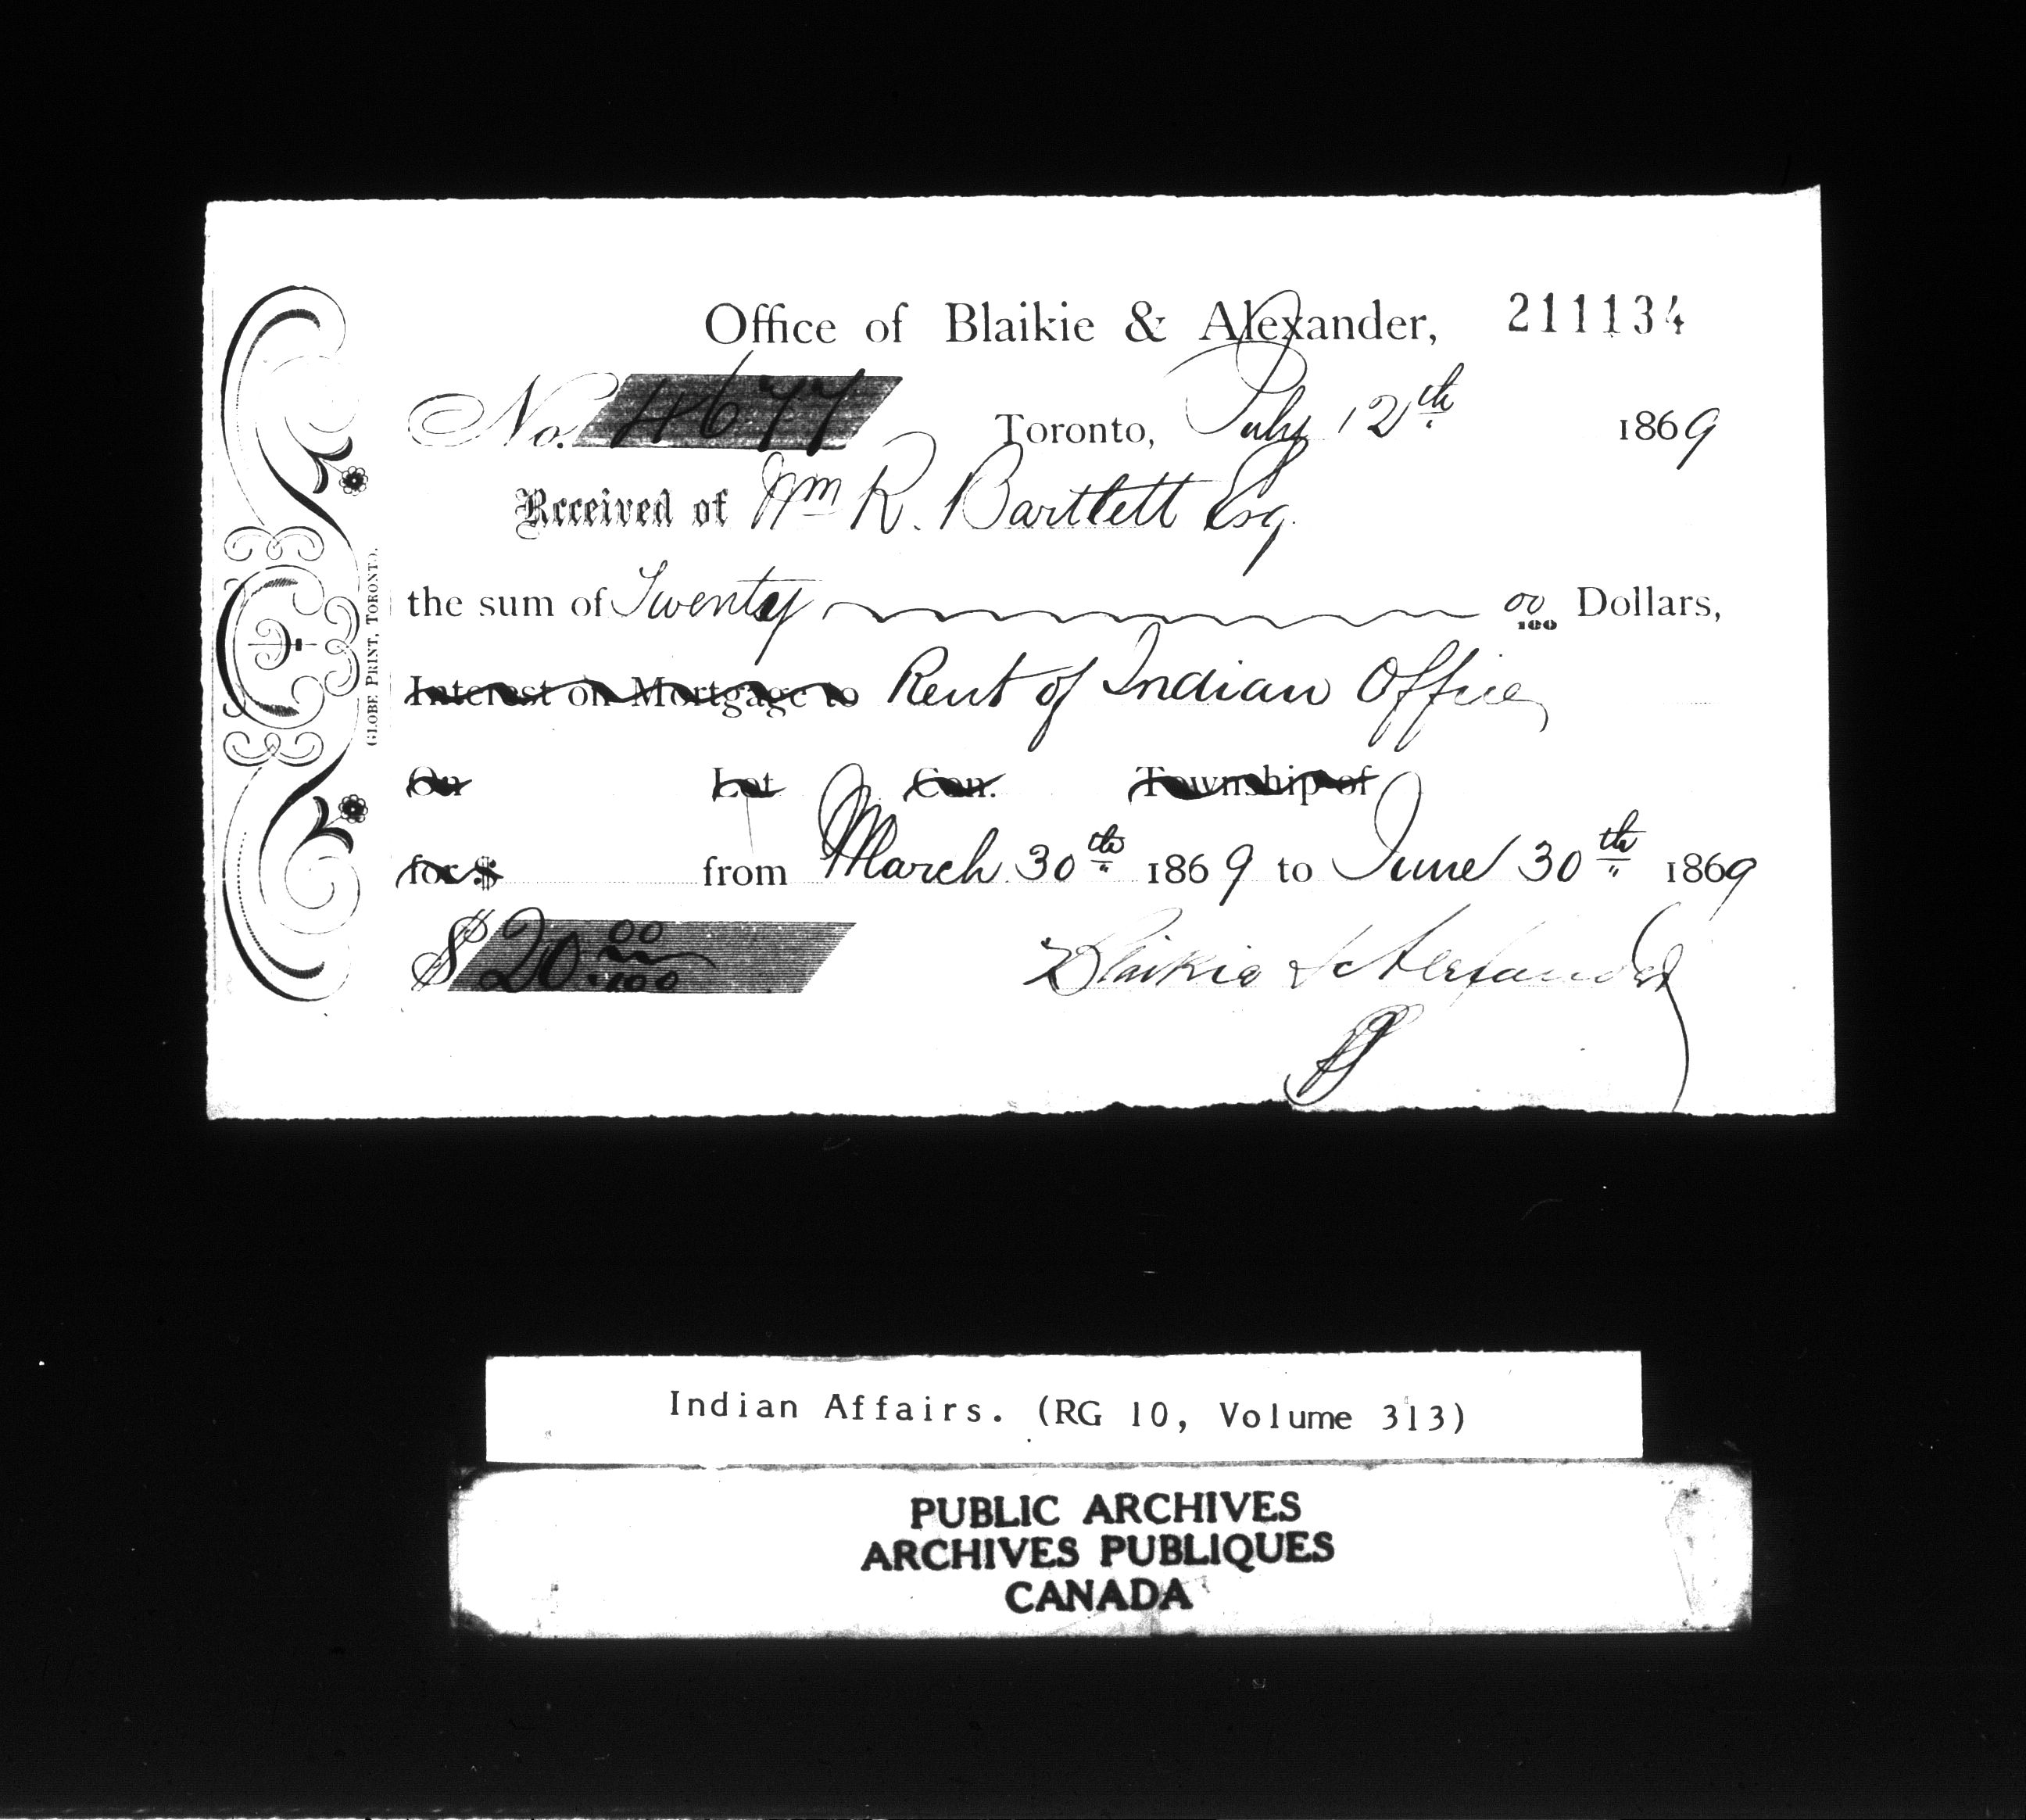 Office of Blaikie & Alexander, 211134
No. 4677 Toronto, July 12th 1869
Received of Wm R. Bartlett Esq.
the sum of Twenty 00/100 Dollars,
Interest on Mortgage to Rent of Indian Office
On Lot Con. Township of
for $ from March 30th 1869 to June 30th 1869
$ 20 00/100 Blaikie & Alexander
GLOBE PRINT, TORONTO.
Indian Affairs. (RG 10, Volume 313)
PUBLIC ARCHIVES
ARCHIVES PUBLIQUES
CANADA